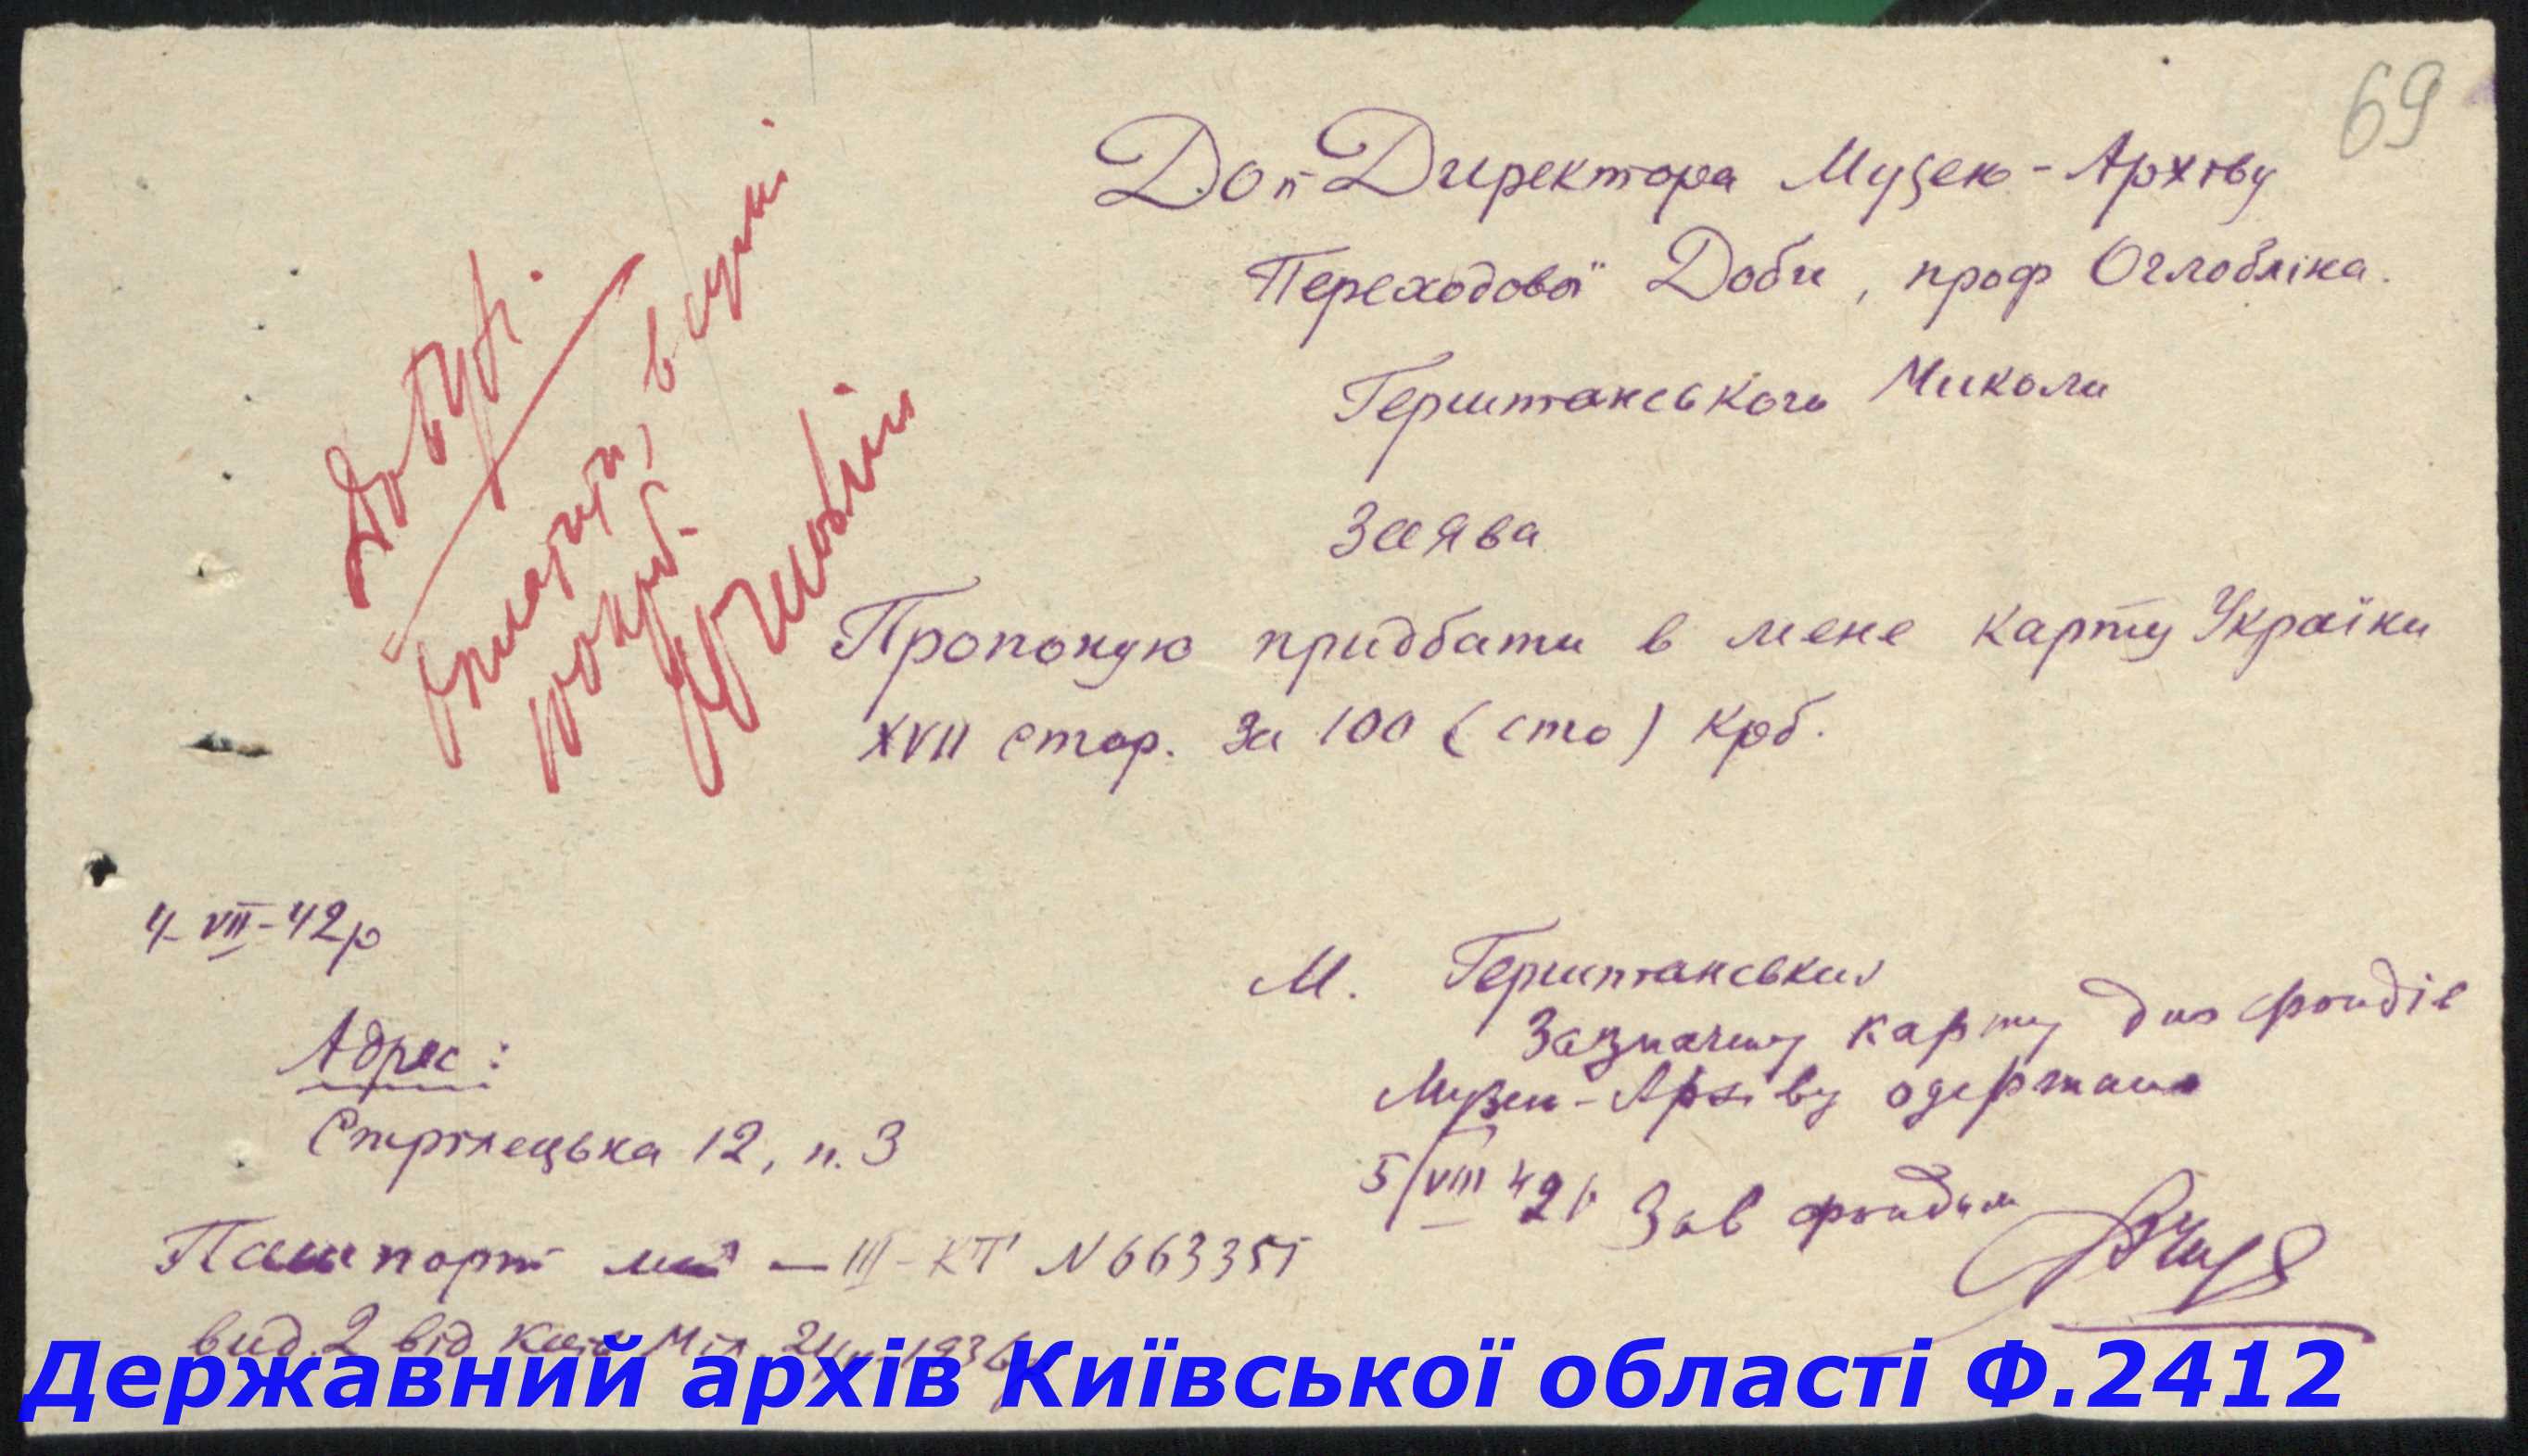 69
До п Директора Музею-Архіву
Переходової Доби, проф Оглобліна.
Герштанського Миколи
Заява
Пропоную придбати в мене карту України
XVII стор. за 100 (сто) крб.
До бух.
в сумі
Оглоблін
4-VII-42р
М. Герштанський
Зазначену карту для фондів
Музею-Архіву одержано
5/VIII 42р Зав фондами
Адрес:
Стрілецька 12, п. 3
Пашпорт мій — III-КТ N 663351
вид. 2 від Київ Міл.
Державний архів Київської області Ф.2412